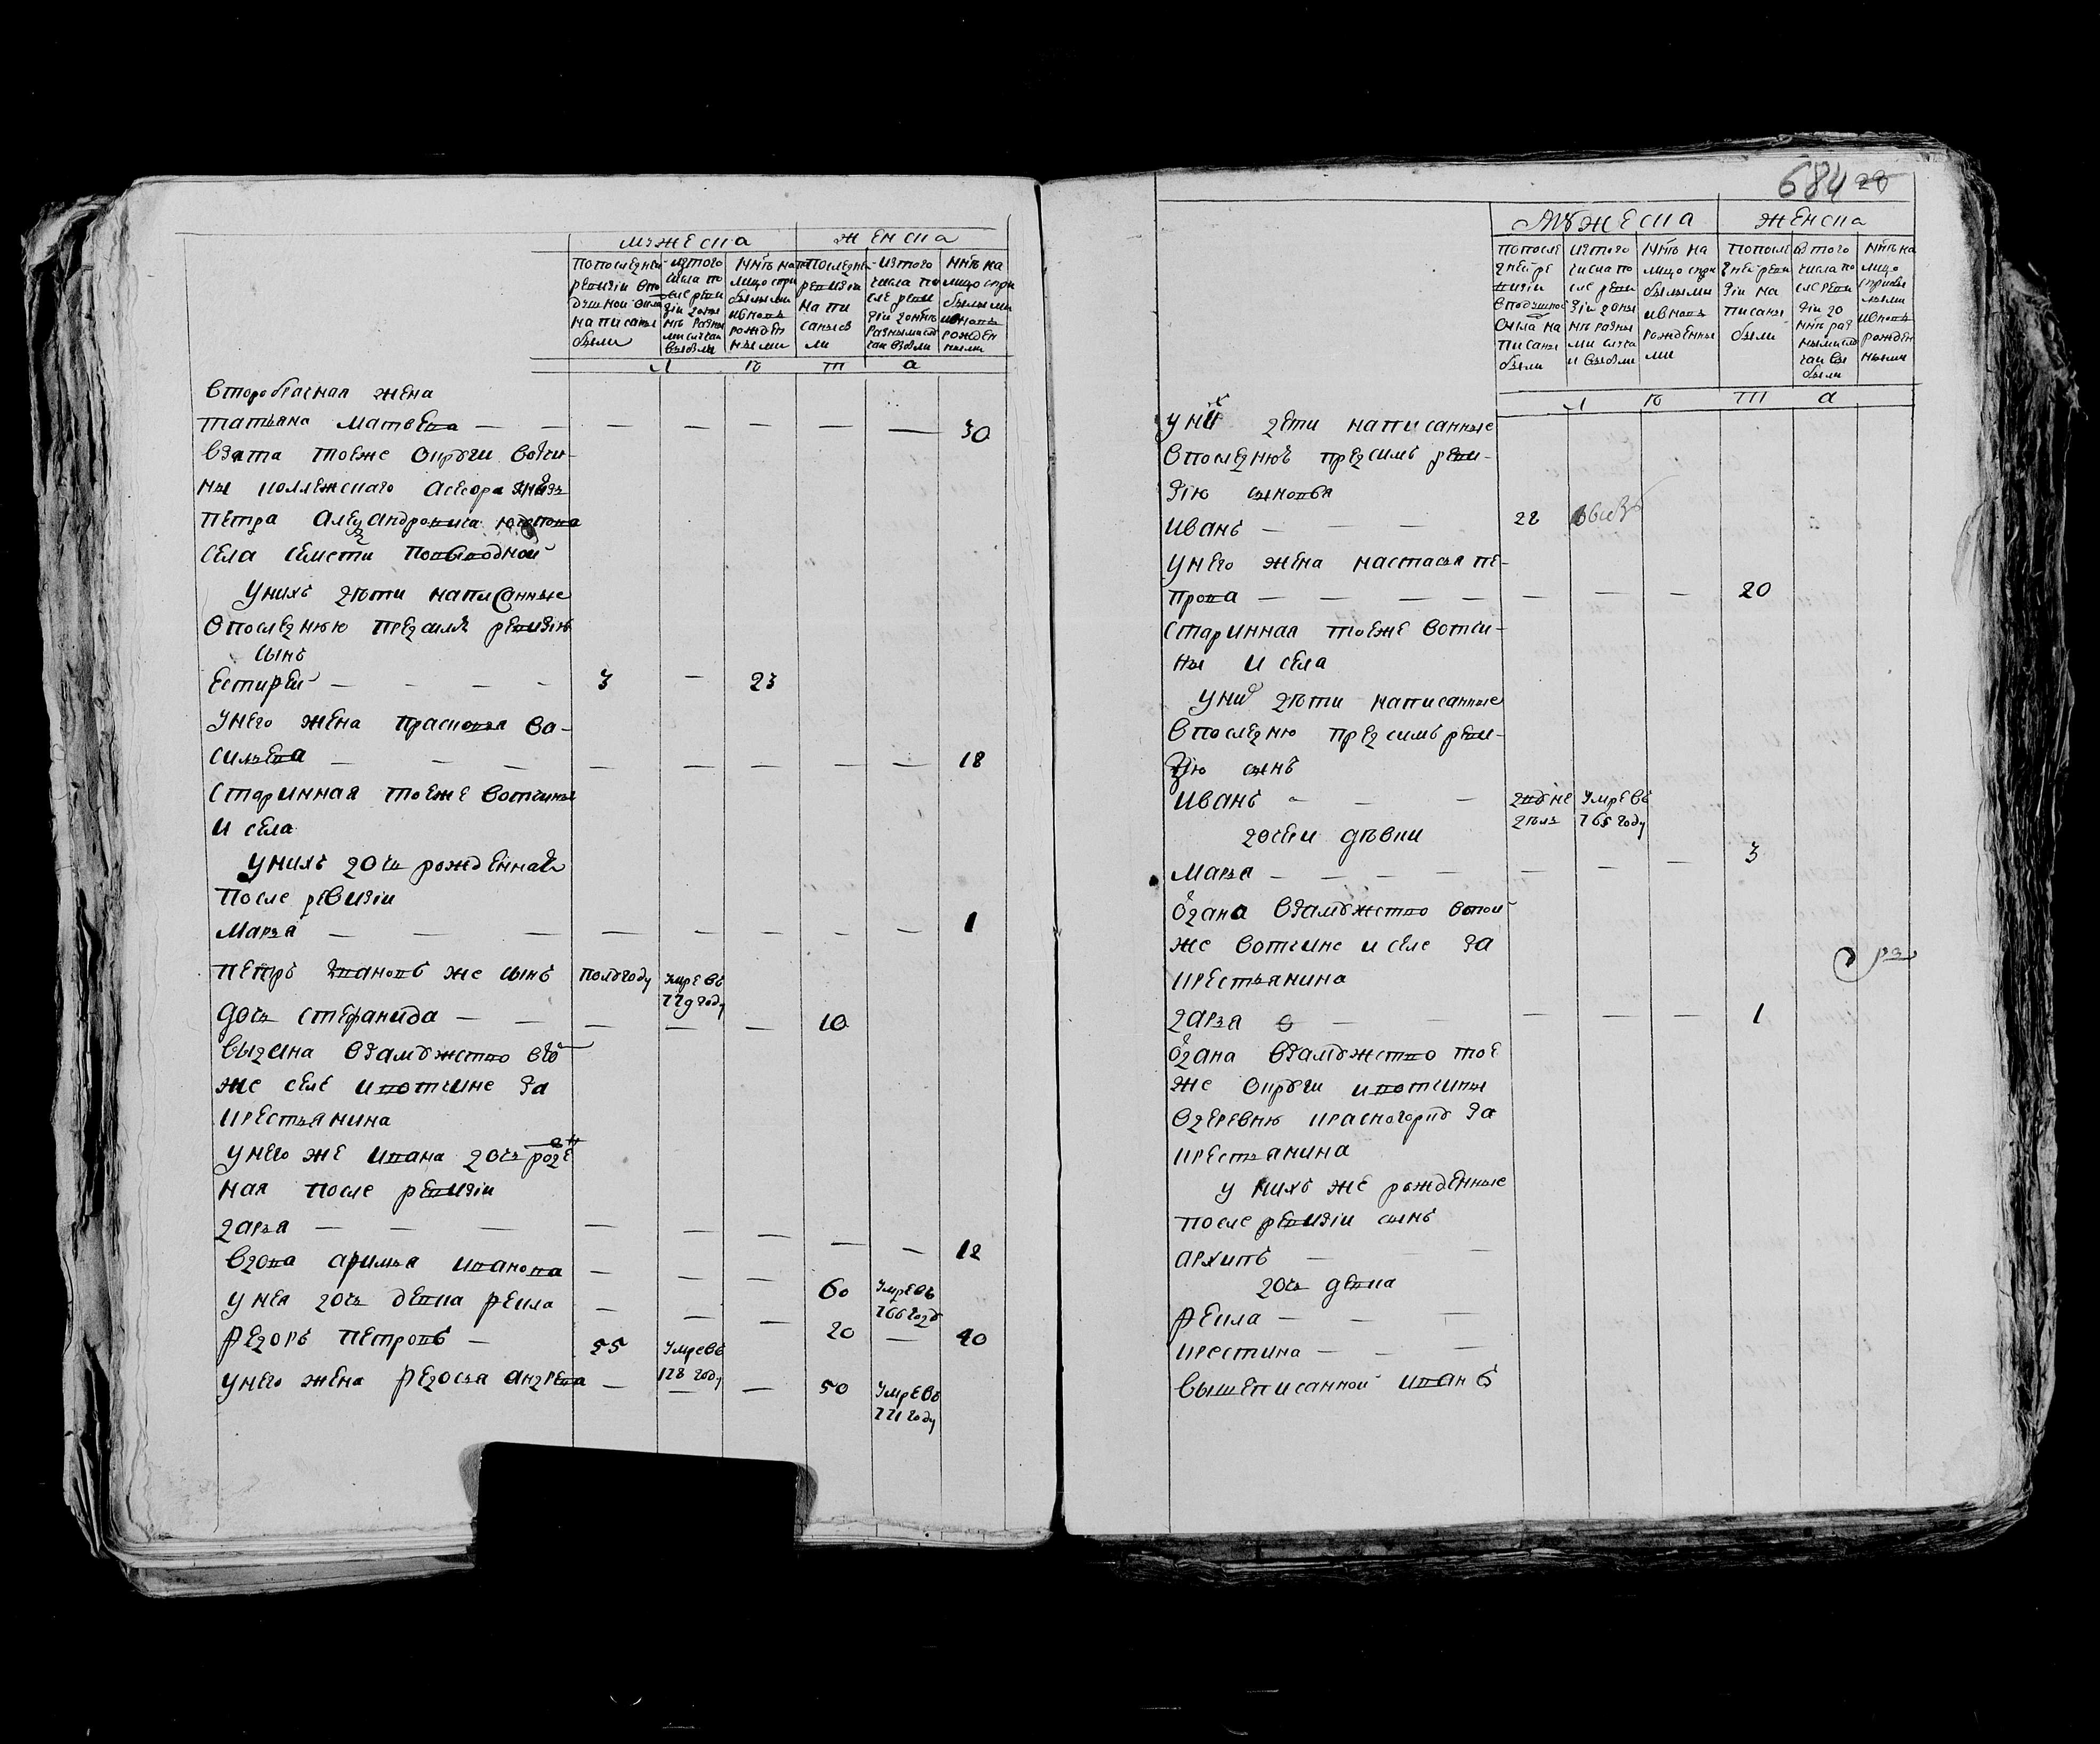 мужеска
женска
по последней ревизіи в подушной оклад написаны были
из того числа после ревизіи до ныне разными случаи выбыли
ныне на лицо с прибылыми и вновь рожденными
по последней ревизіи написаны
из того числа после ревизіи до ныне разными случаи выбыли
ныне на лицо с прибылыми и вновь рожденными
л е т а
второбрачная жена
татьяна матвева — — — — — — — — 30
взята тоеже округи вотчи-
ны коллежскаго асесора
петра александровича
села
у нихъ дѣти написанные
в последнюю пред симъ ревизію
сынъ
— — — — 3 — 23
у него жена прасковья ва-
сильева — — — — — — — — 18
старинная тоеже вотчины
и села
у нихъ дочь рожденная
после ревизіи
марья — — — — — — — — 1
петръ ивановъ же сынъ полугоду умре въ 779 году
дочь стефанида — — — — — 10
выдана взамужство в той
же селе и вотчине за
крестьянина
у него же ивана дочь рожде
ная после ревизіи
дарья — — — — — — — — 12
вдова афимья иванова — — — 60 умре въ 766 году
у нея дочь девка фекла — — — 20 — 40
федоръ петровъ — 55 умре въ 778 году
у него жена федосья андрева — — — 50 умре въ 771 году
684 28
мужеска
женска
по последней ревизіи в подушной оклад написаны были
из того числа после ревизіи до ныне разными случаи выбыли
ныне на лицо с прибылыми и вновь рожденными
по последней ревизіи написаны были
из того числа после ревизіи до ныне разными случаи выбыли
ныне на лицо с прибылыми и вновь рожденными
л е т а
у них дети написанные
в последнюю пред симъ реви-
зію сыновья
иванъ — — — 28
у него жена настасья пе-
трова — — — — — — — 20
старинная тоеже вотчи-
ны и села
у них дѣти написанные
в последню пред симъ реви-
зію сынъ
иванъ — — — дву недель умре въ 765 году
дочери дѣвки
марья — — — — — — — 3
одана взамужство в той
же вотчине и селе за
крестьянина
дарья — — — — — — 1
одана взамужство тое
же округи и вотчины
в деревню красногорку за
крестьянина
у нихъ же рожденные
после ревизіи сынъ
архипъ — —
дочь девка
фекла — — —
крестина — — — —
вышеписанной иванъ